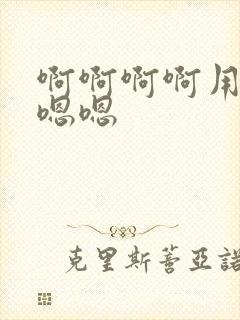 啊啊啊啊用
嗯嗯
克里斯蒂亞諾